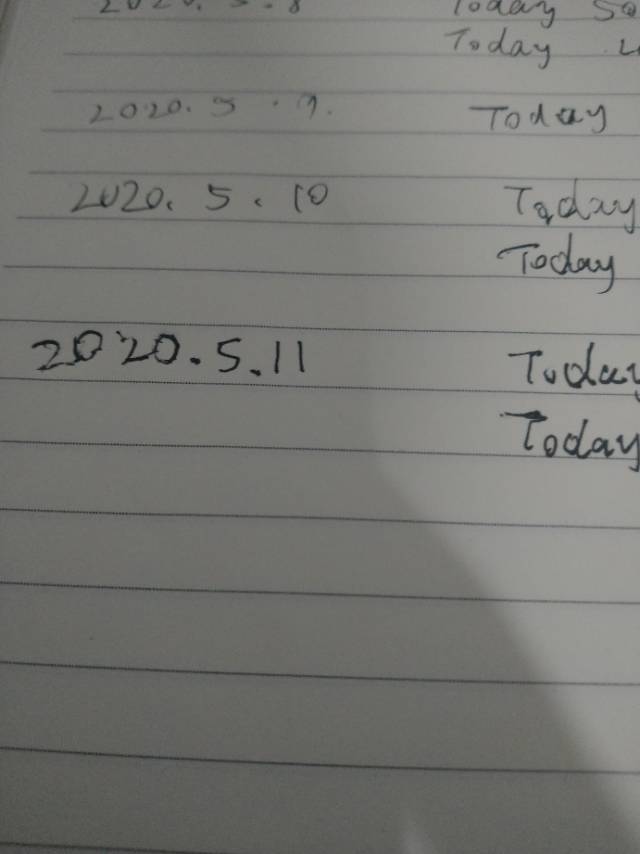 2020. 5. 8 Today
Today
2020. 5. 9. Today
2020. 5. 10 Today
Today
2020.5.11 Today
Today